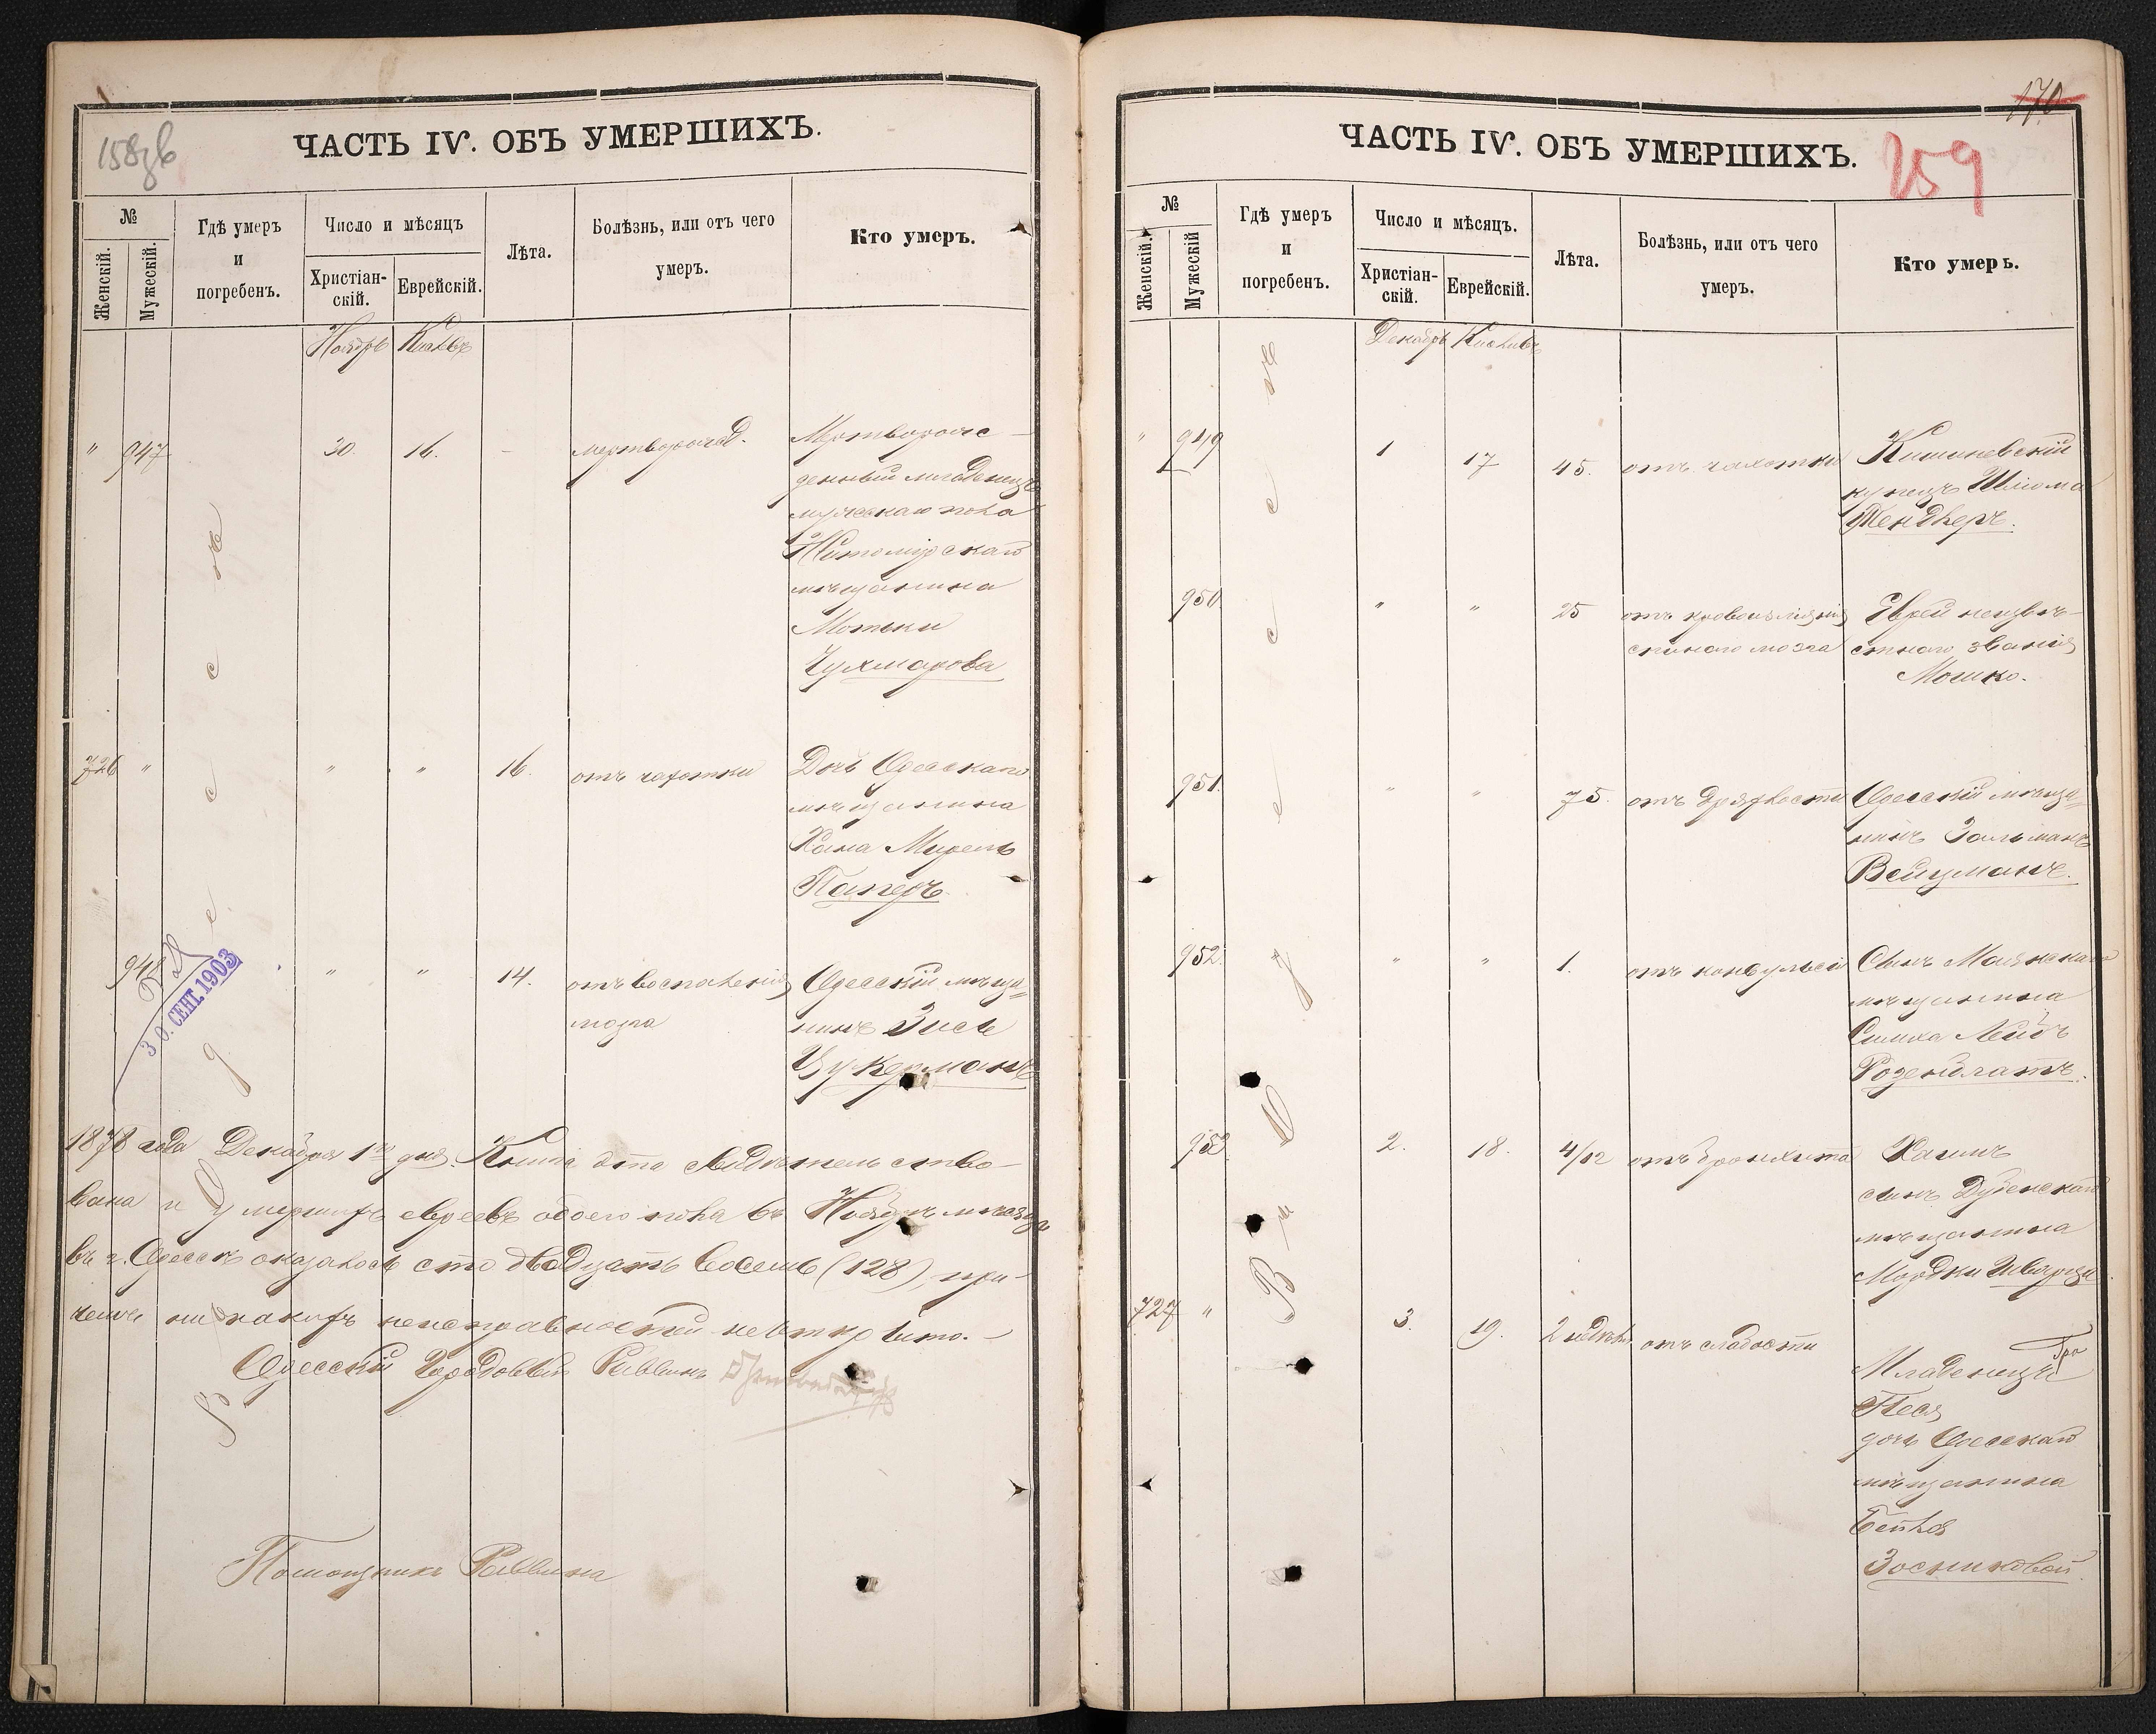 158 зв
ЧАСТЬ IV. ОБЪ УМЕРШИХЪ.
№
Женскій.
Мужескій.
Гдѣ умеръ
и
погребенъ.
Число и мѣсяцъ
Христіан-
скій.
Еврейскій.
Лѣта.
Болѣзнь, или отъ чего
умеръ.
Кто умеръ.
Ноябрь Кислевъ
" 947 30. 16. - мертворожд. Мертворож-
денный младенецъ
мужескаго пола
Житомірскаго
мѣщанина
Мотьки
Чухмарова
726 " " " 16. отъ чахотки Дочь Одесскаго
мѣщанина
Хана Мирель
Паперъ
948 " " 14. отъ воспаленія Одесскій мѣща=
мозга нинъ Зись
Цукерманъ
30. СЕНТ. 1903
въ Одессе
1878 года Декабря 1го дня. Книга эта свидѣтельство-
вана и умершихъ евреевъ обоего пола въ Ноябрѣ мѣсяцѣ
въ г. Одессѣ оказалось сто двадцать восемь (128), при-
чемъ никакихъ неисправностей не открыто. -
Одесскій Городовой Раввинъ
Помощникъ Раввина
170
159
ЧАСТЬ IV. ОБЪ УМЕРШИХЪ.
№
Женскій.
Мужескій
Гдѣ умеръ
и
погребенъ.
Число и мѣсяцъ.
Христіан-
скій.
Еврейскій.
Лѣта.
Болѣзнь, или отъ чего
умеръ.
Кто умеръ.
Декабрь Кислевъ
" 949 1 17 45. отъ чахотки Кишиневскій
купецъ Шлома
Тендлеръ.
950. " " 25 отъ кровоизліянія Еврей неизвѣ-
спинного мозга стнаго званія
Мошко.
951. " " 75. отъ дряхлости Одесскій мѣща=
нинъ Зальманъ
Вейцманъ.
952. " " 1. отъ конвульсій Сынъ Маякскаго
мѣщанина
Симха Лейбъ
Розенблатъ.
953 2. 18. 4/12 отъ бронхита Хаимъ
сынъ Дубенскаго
мѣщанина
Мордки Шварца.
727 " 3. 19. 2 недѣль отъ слабости Младенецъ
Песя
дочь Одесскаго
мѣщанина
Бейлы
Зосниковой.
Въ Одессе